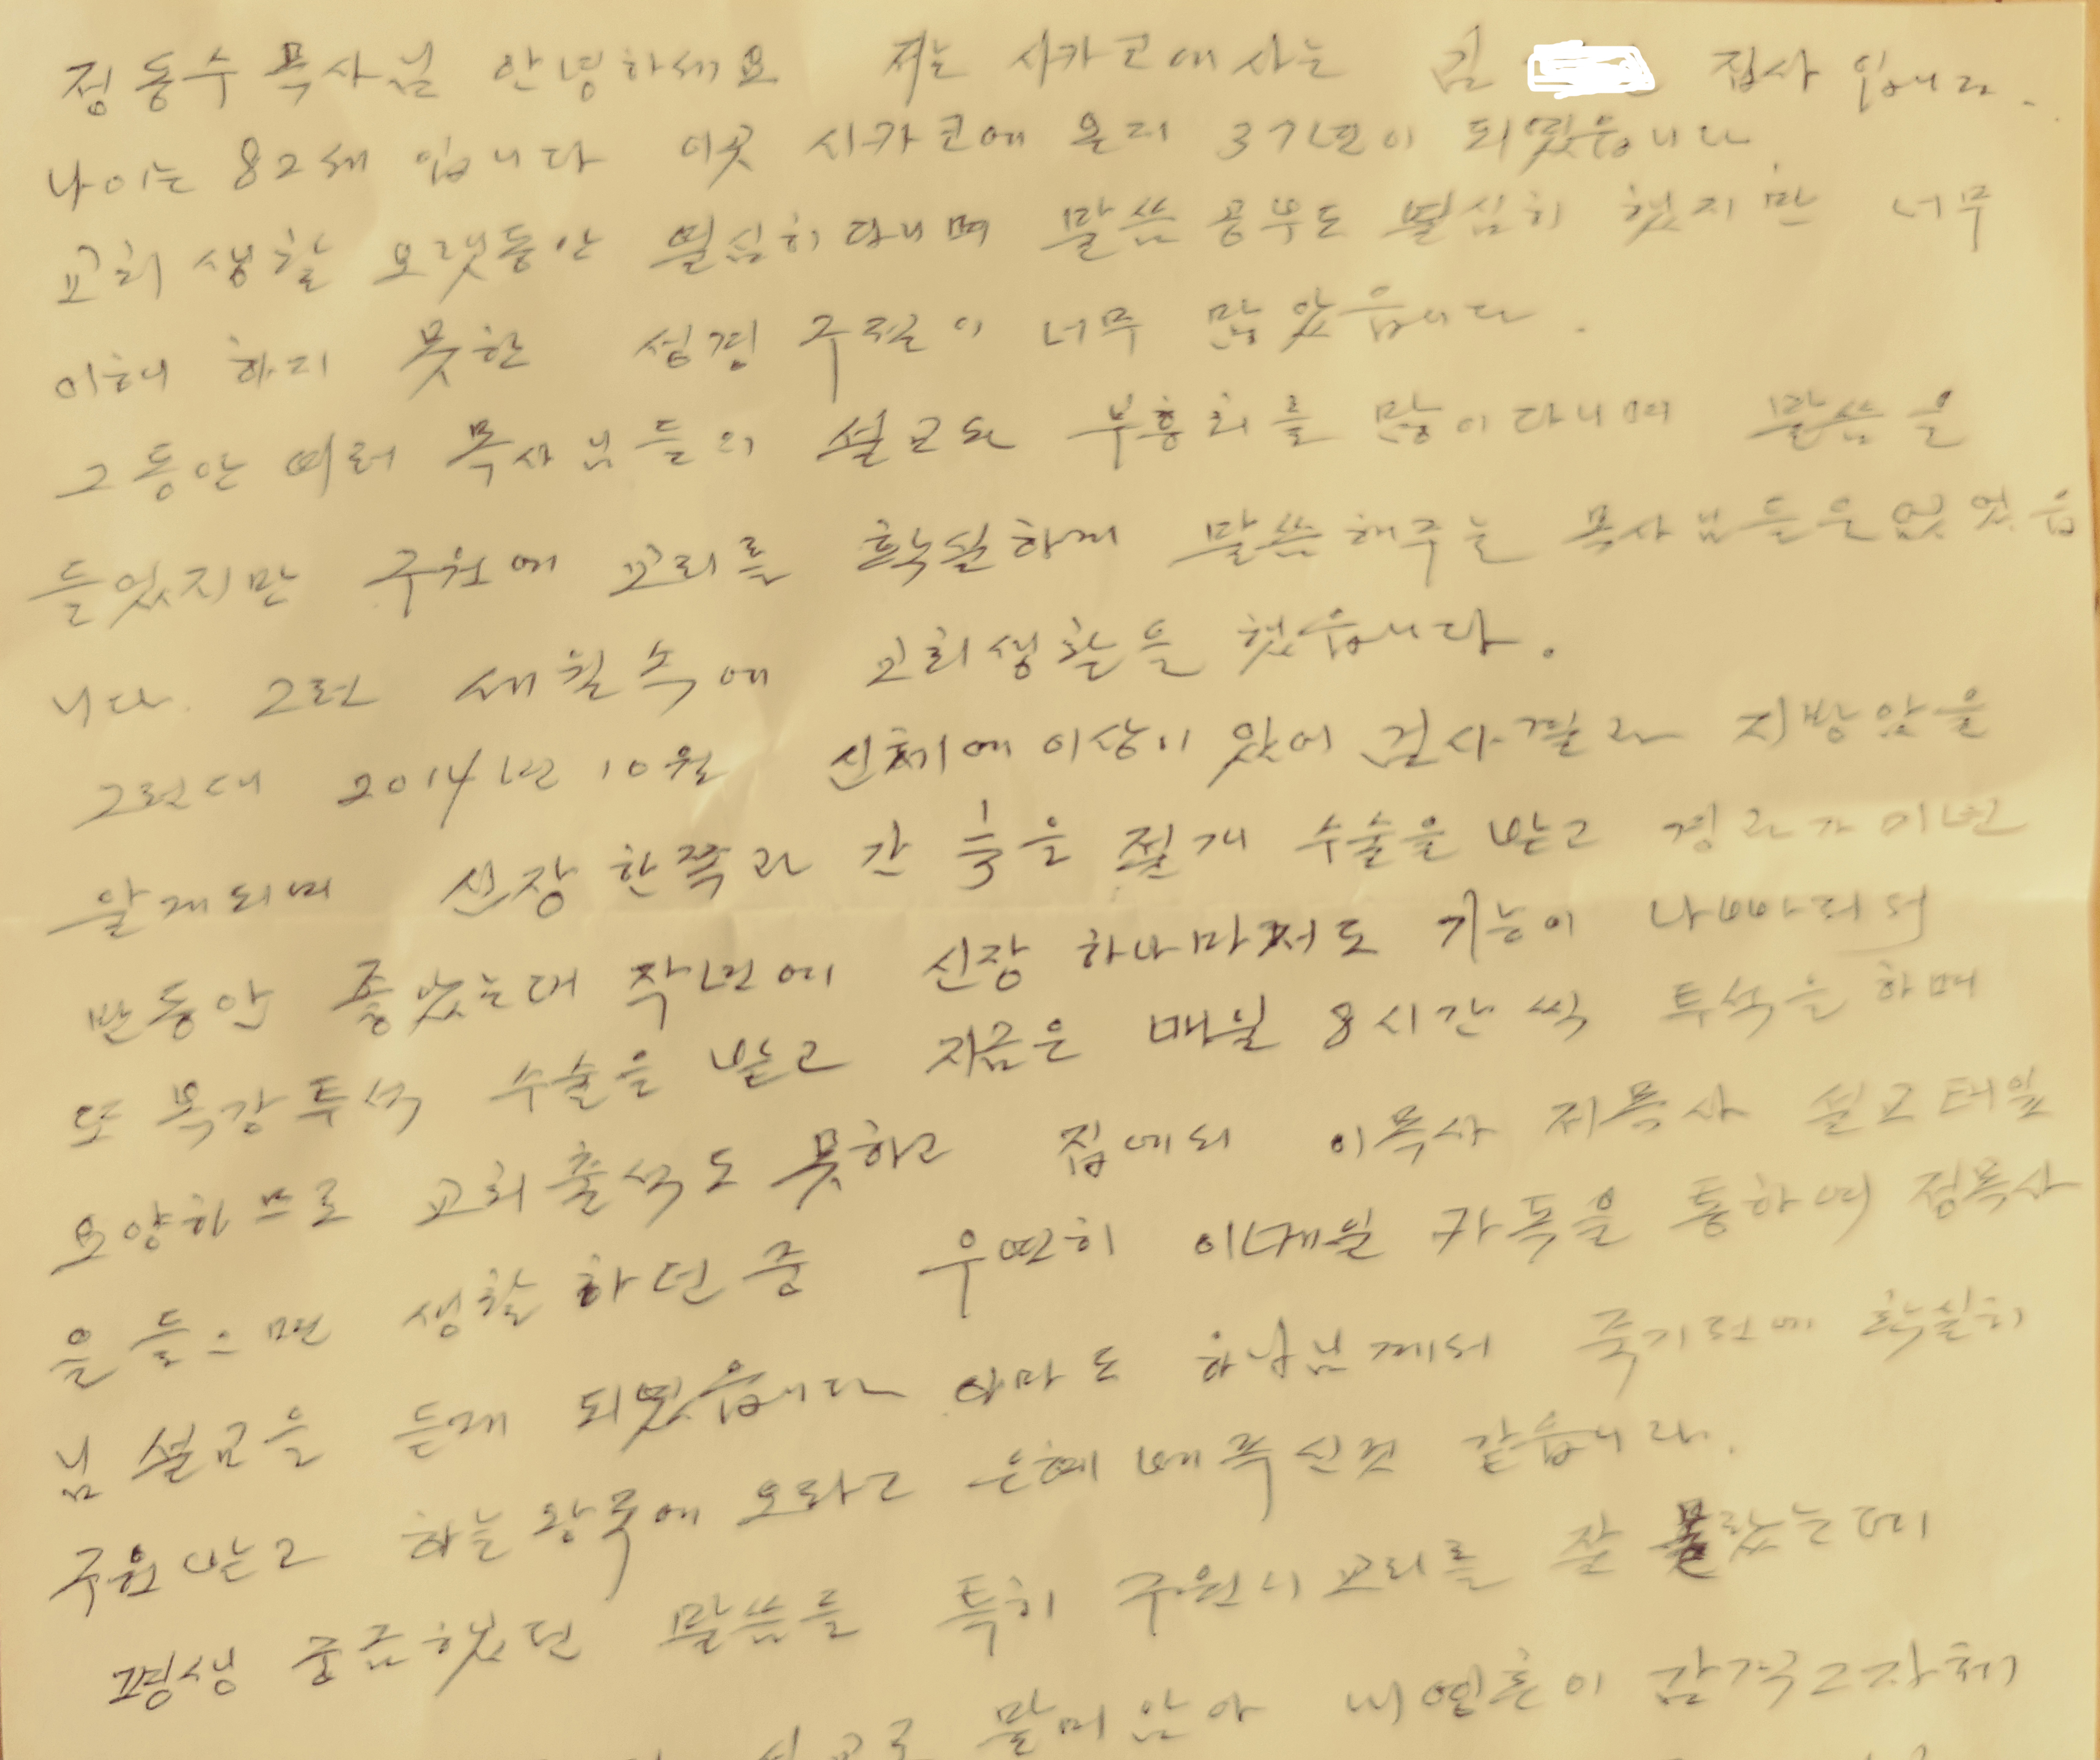 정동수 목사님 안녕하세요 저는 시카코에 사는 김 집사 입니다.
나이는 82세 입니다 이곳 시카코에 온지 37년이 되였읍니다.
교회 생활 오랫동안 열심히 다니며 말씀 공부도 열심히 했지만 너무
이해 하지 못한 성경 구절이 너무 많았읍니다.
그동안 여러 목사님들의 설교와 부흥회를 많이 다니며 말씀을
들었지만 구원에 교리를 확실하게 말씀해주는 목사님들은 없었읍
니다. 그런 세월 속에 교회생활을 했읍니다.
그런대 2014년 10월 신체에 이상이 있어 검사결과 지방암을
알게되며 신장 한쪽과 간 ⅓을 절개 수술을 받고 경과가 이년
반동안 좋았는대 작년에 신장 하나마저도 기능이 나빠져서
또 복강투석 수술을 받고 지금은 매일 8시간씩 투석을 하며
요양하므로 교회출석도 못하고 집에서 이목사 저목사 설교 테잎
을 들으면 생활하던 중 우연히 이개월 카톡을 통하여 정목사
님 설교을 듣게 되였읍니다 아마도 하나님께서 죽기전에 확실히
구원받고 하늘왕국에 오라고 은혜 베푸신것 같습니다.
평생 궁금했던 말씀들 특히 구원의 교리를 잘 몰랐는데
설교로 말미암아 내 영혼이 감격 그자체